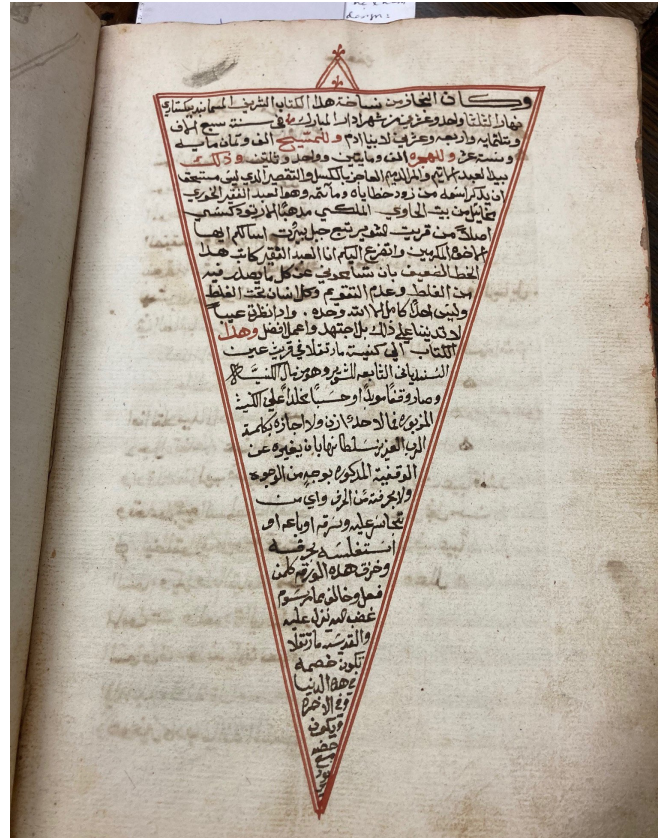 وكان النجاز من نساخة هذا الكتاب الشريف المسما بنديكستاري
نهار الثلثا واحد وعشرين من شهر ادار المبارك في سنة سبع الاف
وثلثمايه واربعه وعشرين لابينا ادم وللمسيح الف وثمان مايه
وستة عشر وللهجره الف ومايتين وواحد وثلثين وذلك
بيد العبد الاثيم العاجز بالكسل والتقصير الدي ليس مستحق
ان يدكر اسمه من زود خطاياه وماتمه وهو العبد الفقير الخوري
من بيت الحاوي الملكي مدهبًا
اصلا من قريت الشوير تبع جبل بيروت اسالكم ايها
الاخوة المكرمين واتضرع اليكم انا العبد الفقير كاتب هذا
الخط الضعيف بان تسامحوني عن كل ما يصدر فيه
من الغلط وعدم التقويم وكل انسان تحت الغلط
وليس احدًا كامل الا الله وحده . وادا نظرت عيبا
لا تديننا على ذلك بل اجتهد واعمل افضل وهذا
الكتاب الى كنيسة مار تقلا في قرية عين
السنديانه التابعه للشوير وهو من مال الكنيسة
وصار وقفًا موبدًا وحبسًا مخلدًا على الكنيسة
المزبوره فلا احد ولا اجازه بكلمة
الرب العزيز سلطانها بان يغيره عن
الوقفية المدكوره بوجهٍ من الوجوه
ولا بحرفة من الحرف واي من
تجاسر عليه وسرقه او باعه او
استغلسه بحرفه
وخزق هذه الورقه كلمن
فعل وخالف ما نرسوم
غضب الله ينزل عليه
والقديسه مار تقلا
تكون خصمه
في هذه الدنيا
وفي الاخره
ويكون